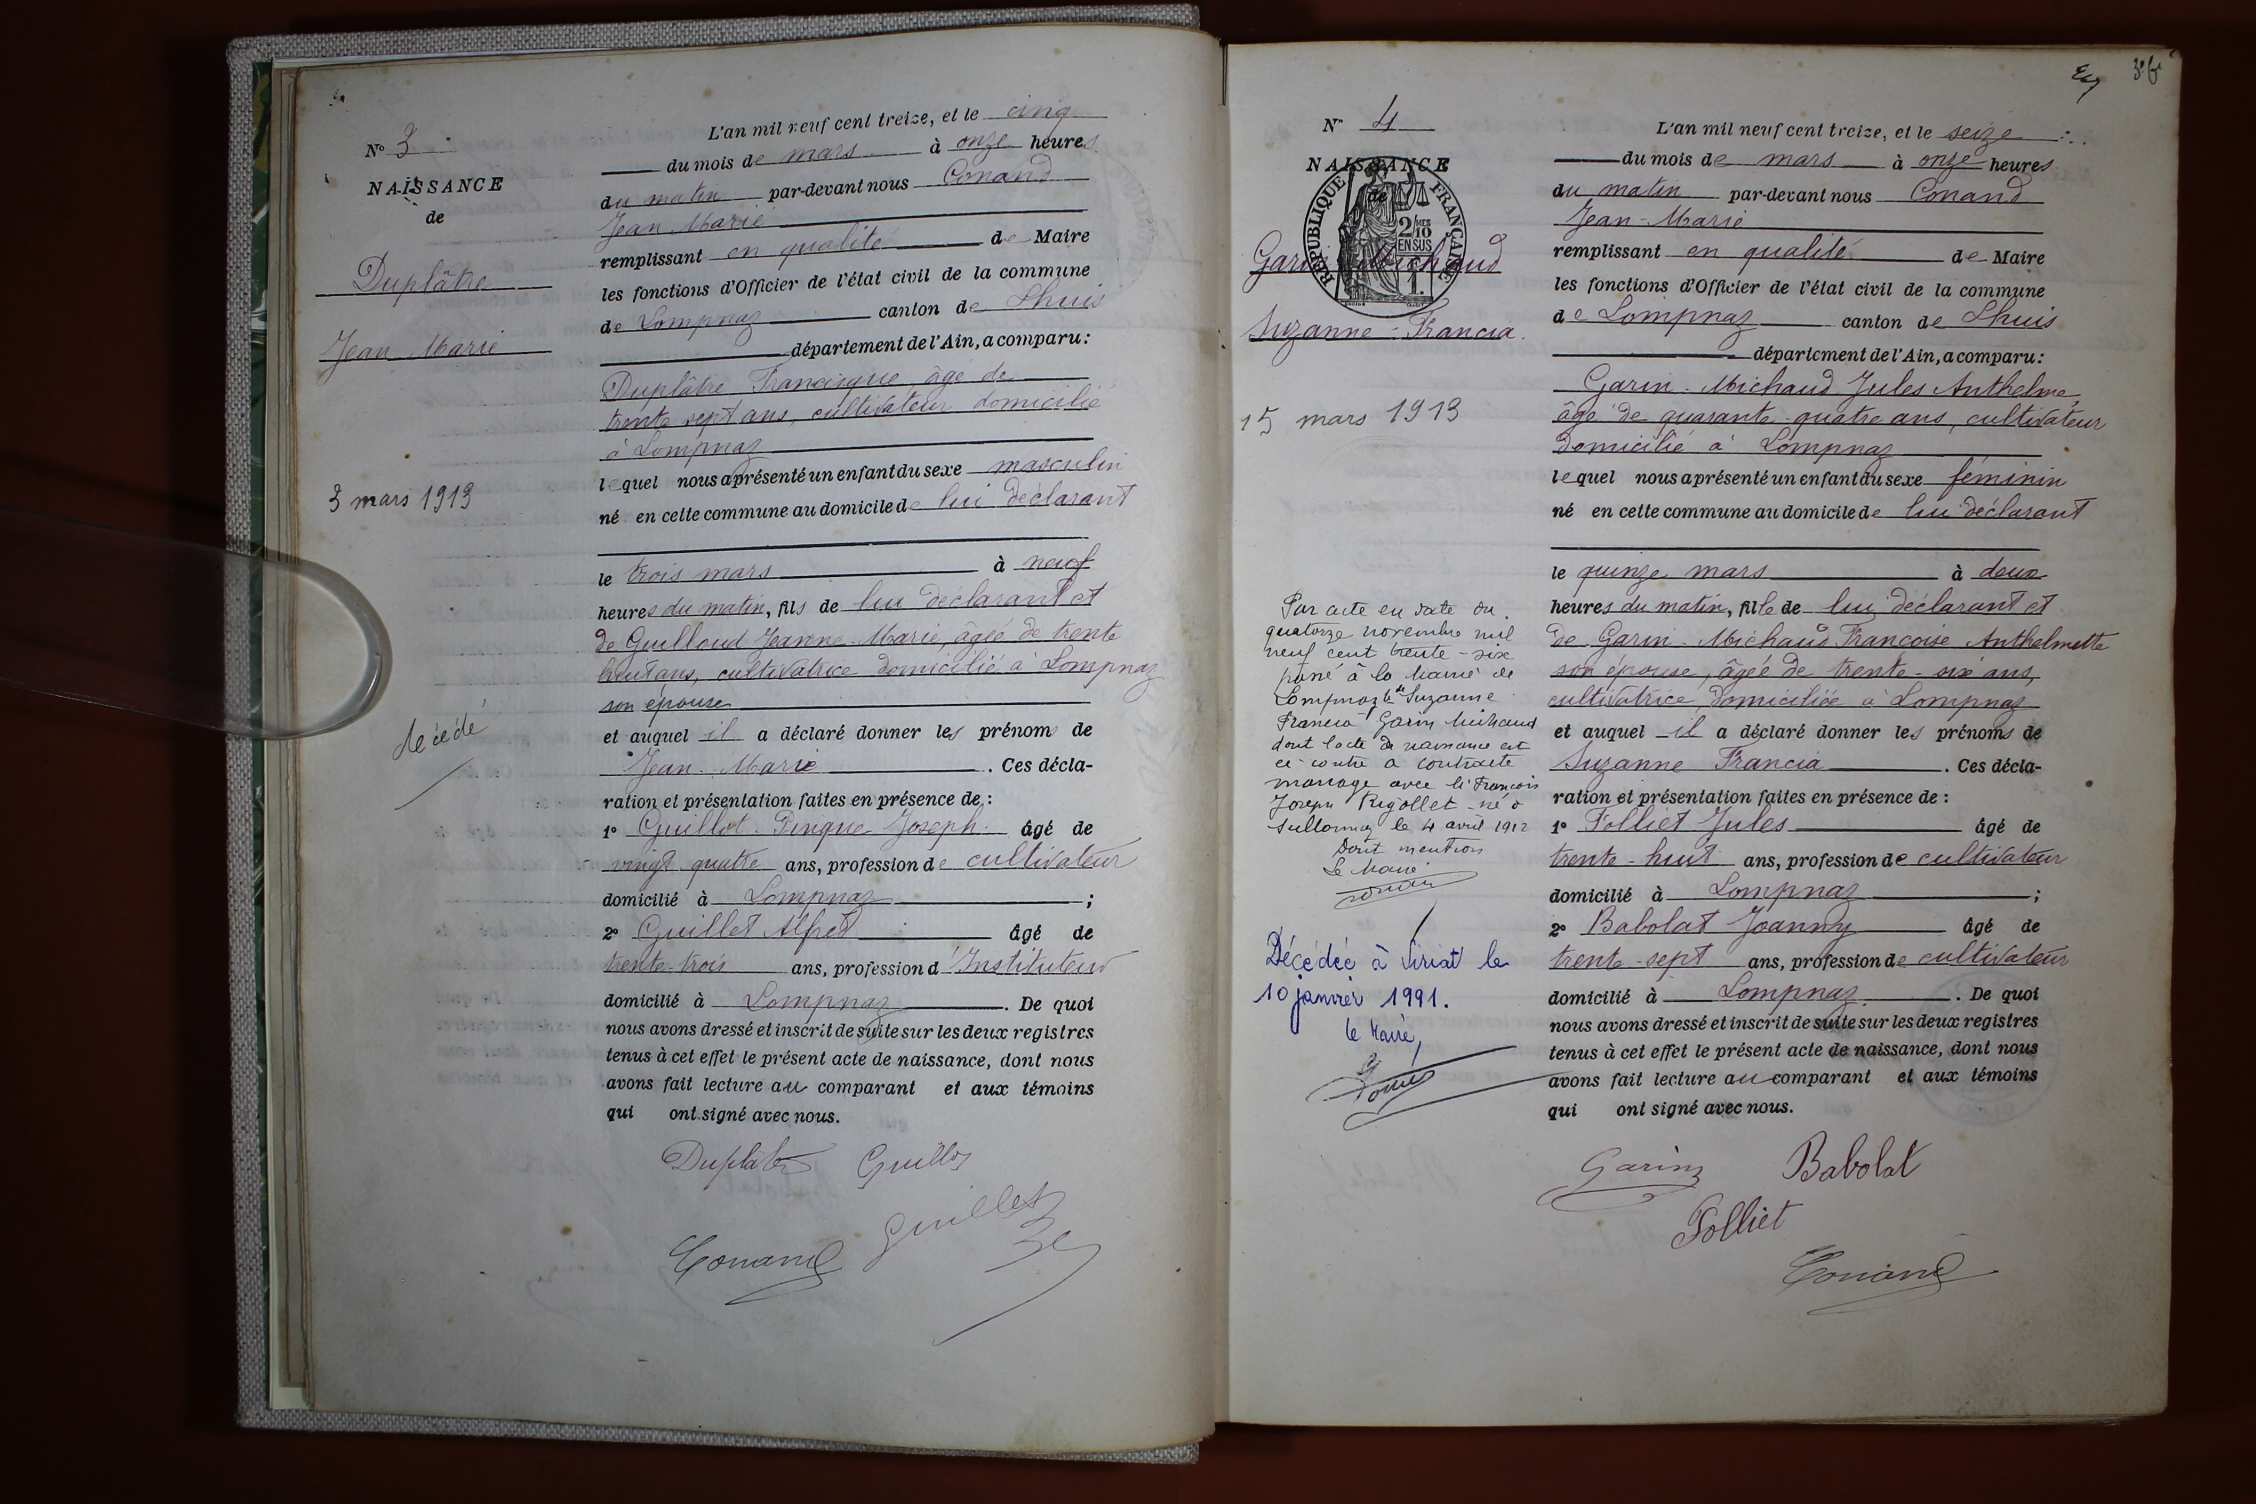 N° 3
NAISSANCE
de
Duplâtre
Jean Marie
3 mars 1913
décédé
L'an mil neuf cent treize, et le cinq
du mois de mars à onze heures
du matin par-devant nous Conand
Jean Marie
remplissant en qualité de Maire
les fonctions d'Officier de l'état civil de la commune
de Lompnaz canton de Lhuis
département de l'Ain, a comparu:
Duplâtre Francisque âgé de
trente sept ans, cultivateur domicilié
à Lompnaz
lequel nous a présenté un enfant du sexe masculin
né en cette commune au domicile de lui déclarant
le trois mars à neuf
heures du matin, fils de lui déclarant et
de Guilloud Jeanne-Marie, âgée de trente
huit ans, cultivatrice domicilié à Lompnaz
son épouse
et auquel il a déclaré donner les prénoms de
Jean-Marie . Ces décla-
ration et présentation faites en présence de :
1° Guillot Pinque Joseph âgé de
vingt quatre ans, profession de cultivateur
domicilié à Lompnaz ;
2° Guillet Alfred âgé de
trente-trois ans, profession d'Instituteur
domicilié à Lompnaz . De quoi
nous avons dressé et inscrit de suite sur les deux registres
tenus à cet effet le présent acte de naissance, dont nous
avons fait lecture au comparant et aux témoins
qui ont signé avec nous.
Duplâtre Guillot
Guillet
Conand
N° 4
NAISSANCE
de
RÉPUBLIQUE FRANÇAISE
2/10 MES
EN SUS
1.
Garin-Michaud
Suzanne-Francia.
15 mars 1913
Par acte en date du
quatorze novembre mil
neuf cent trente-six
passé à la Mairie de
Lompnaz la dte Suzanne
Francia Garin Michaud
dont l'acte de naissance est
ci-contre a contracté
mariage avec le sr François
Joseph Rigollet né à
le 4 avril 1912
Dont mention
Le Maire
Décédée à Viriat le
10 janvier 1991.
le Maire,
L'an mil neuf cent treize, et le seize
du mois de mars à onze heures
du matin par-devant nous Conand
Jean-Marie
remplissant en qualité de Maire
les fonctions d'Officier de l'état civil de la commune
de Lompnaz canton de Lhuis
département de l'Ain, a comparu:
Garin-Michaud Jules Anthelme,
âgé de quarante-quatre ans, cultivateur
domicilié à Lompnaz
lequel nous a présenté un enfant du sexe féminin
né en cette commune au domicile de lui déclarant
le quinze mars à deux
heures du matin, fille de lui déclarant et
de Garin-Michaud Françoise Anthelmette
son épouse, âgée de trente-six ans,
cultivatrice, domiciliée à Lompnaz
et auquel il a déclaré donner les prénoms de
Suzanne Francia . Ces décla-
ration et présentation faites en présence de :
1° Folliet Jules âgé de
trente-huit ans, profession de cultivateur
domicilié à Lompnaz ;
2° Babolat Joanny âgé de
trente-sept ans, profession de cultivateur
domicilié à Lompnaz . De quoi
nous avons dressé et inscrit de suite sur les deux registres
tenus à cet effet le présent acte de naissance, dont nous
avons fait lecture au comparant et aux témoins
qui ont signé avec nous.
Garin Babolat
Folliet
Conand